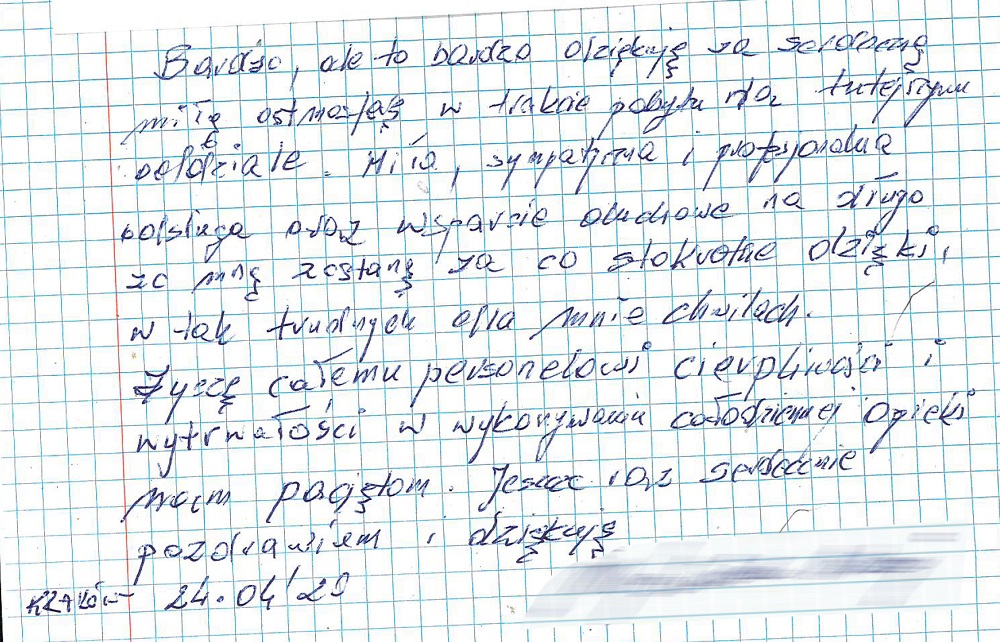 Bardzo, ale to bardzo dziękuję za serdeczną
miłą atmosferę w trakcie pobytu na tutejszym
oddziale. Miła, sympatyczna i profesjonalna
obsługa oraz wsparcie duchowe na długo
ze mną zostaną za co stokrotne dzięki,
w tak trudnych dla mnie chwilach.
Życzę całemu personelowi cierpliwości i
wytrwałości w wykonywaniu całodziennej opieki
pacjętom. Jeszcze raz serdecznie
pozdrawiam i dziękuję
Kraków 24.04